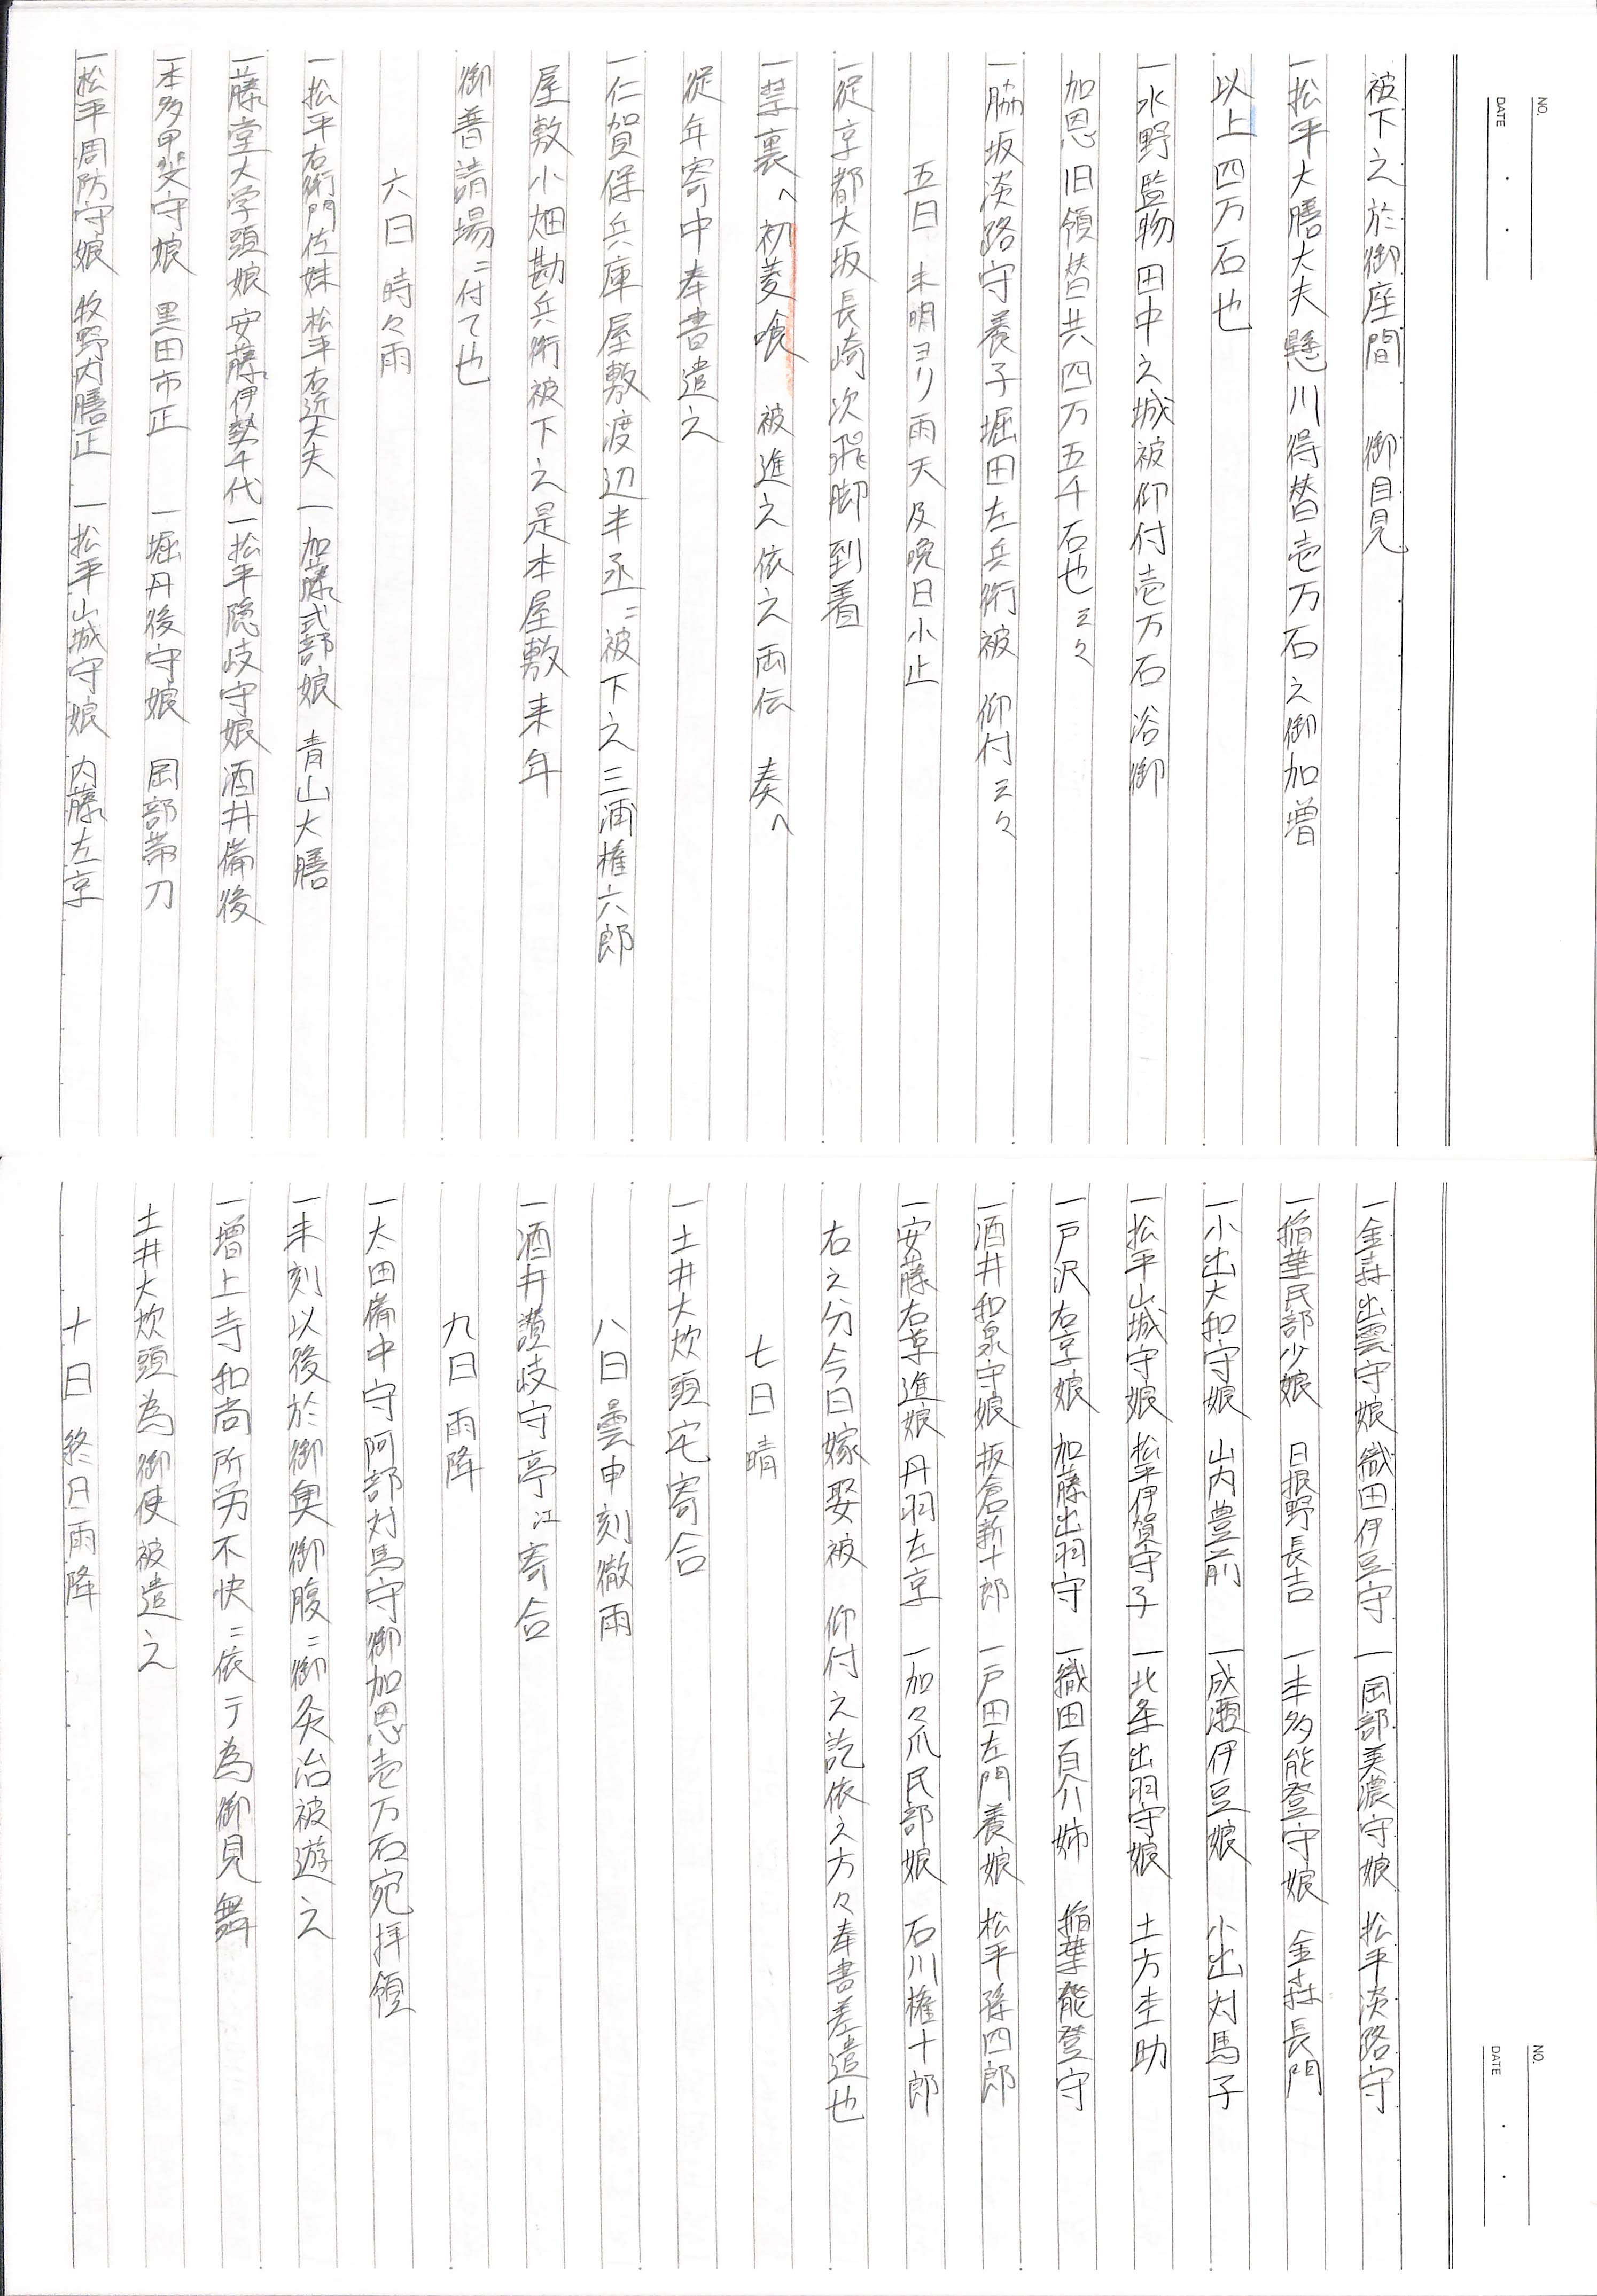 NO.
DATE
被下之於御座間　御目見
一松平大膳大夫懸川得替壱万石之御加増
以上四万石也
一水野監物田中之城被仰付壱万石浴御
加恩旧領替共四万五千石也云々
一脇坂淡路守養子堀田左兵衛被　仰付云々
五日　未明ヨリ雨天及晩日小止
一従京都大坂長崎次飛脚到着
一禁裏へ初菱喰　被進之依之両伝　奏へ
従年寄中奉書遣之
一仁賀保兵庫屋敷渡辺半丞ニ被下之三浦権六郎
屋敷小畑勘兵衛被下之是本屋敷来年
御普請場ニ付て也
六日　時々雨
一松平右衛門佐妹 松平右近大夫　一加藤式部娘　青山大膳
一藤堂大学頭娘 安藤伊勢千代 一松平隠岐守娘 酒井備後
一本多甲斐守娘　黒田市正　一堀丹後守娘　岡部帯刀
一松平周防守娘　牧野内膳正　一松平山城守娘　内藤左京
NO.
DATE
一金森出雲守娘 織田伊豆守　一岡部美濃守娘　松平淡路守
一稲葉民部少娘　日根野長吉　一本多能登守娘　金森長門
一小出大和守娘　山内豊前　一成瀬伊豆娘　小出対馬子
一松平山城守娘 松平伊賀守子　一北条出羽守娘　土方杢助
一戸沢右京娘　加藤出羽守　一織田百介姉　稲葉能登守
一酒井和泉守娘 板倉新十郎　一戸田左門養娘　松平孫四郎
一安藤右京進娘 丹羽左京　一加々爪民部娘　石川権十郎
右之分今日嫁娶被　仰付之訖依之方々奉書差遣也
七日　晴
一土井大炊頭宅寄合
八日　曇申刻微雨
一酒井讃岐守亭江寄合
九日　雨降
一太田備中守阿部対馬守御加恩壱万石宛拝領
一未刻以後於御奥御腹ニ御灸治被遊之
一増上寺和尚所労不快ニ依テ為御見舞
土井大炊頭為御使被遣之
十日　終日雨降